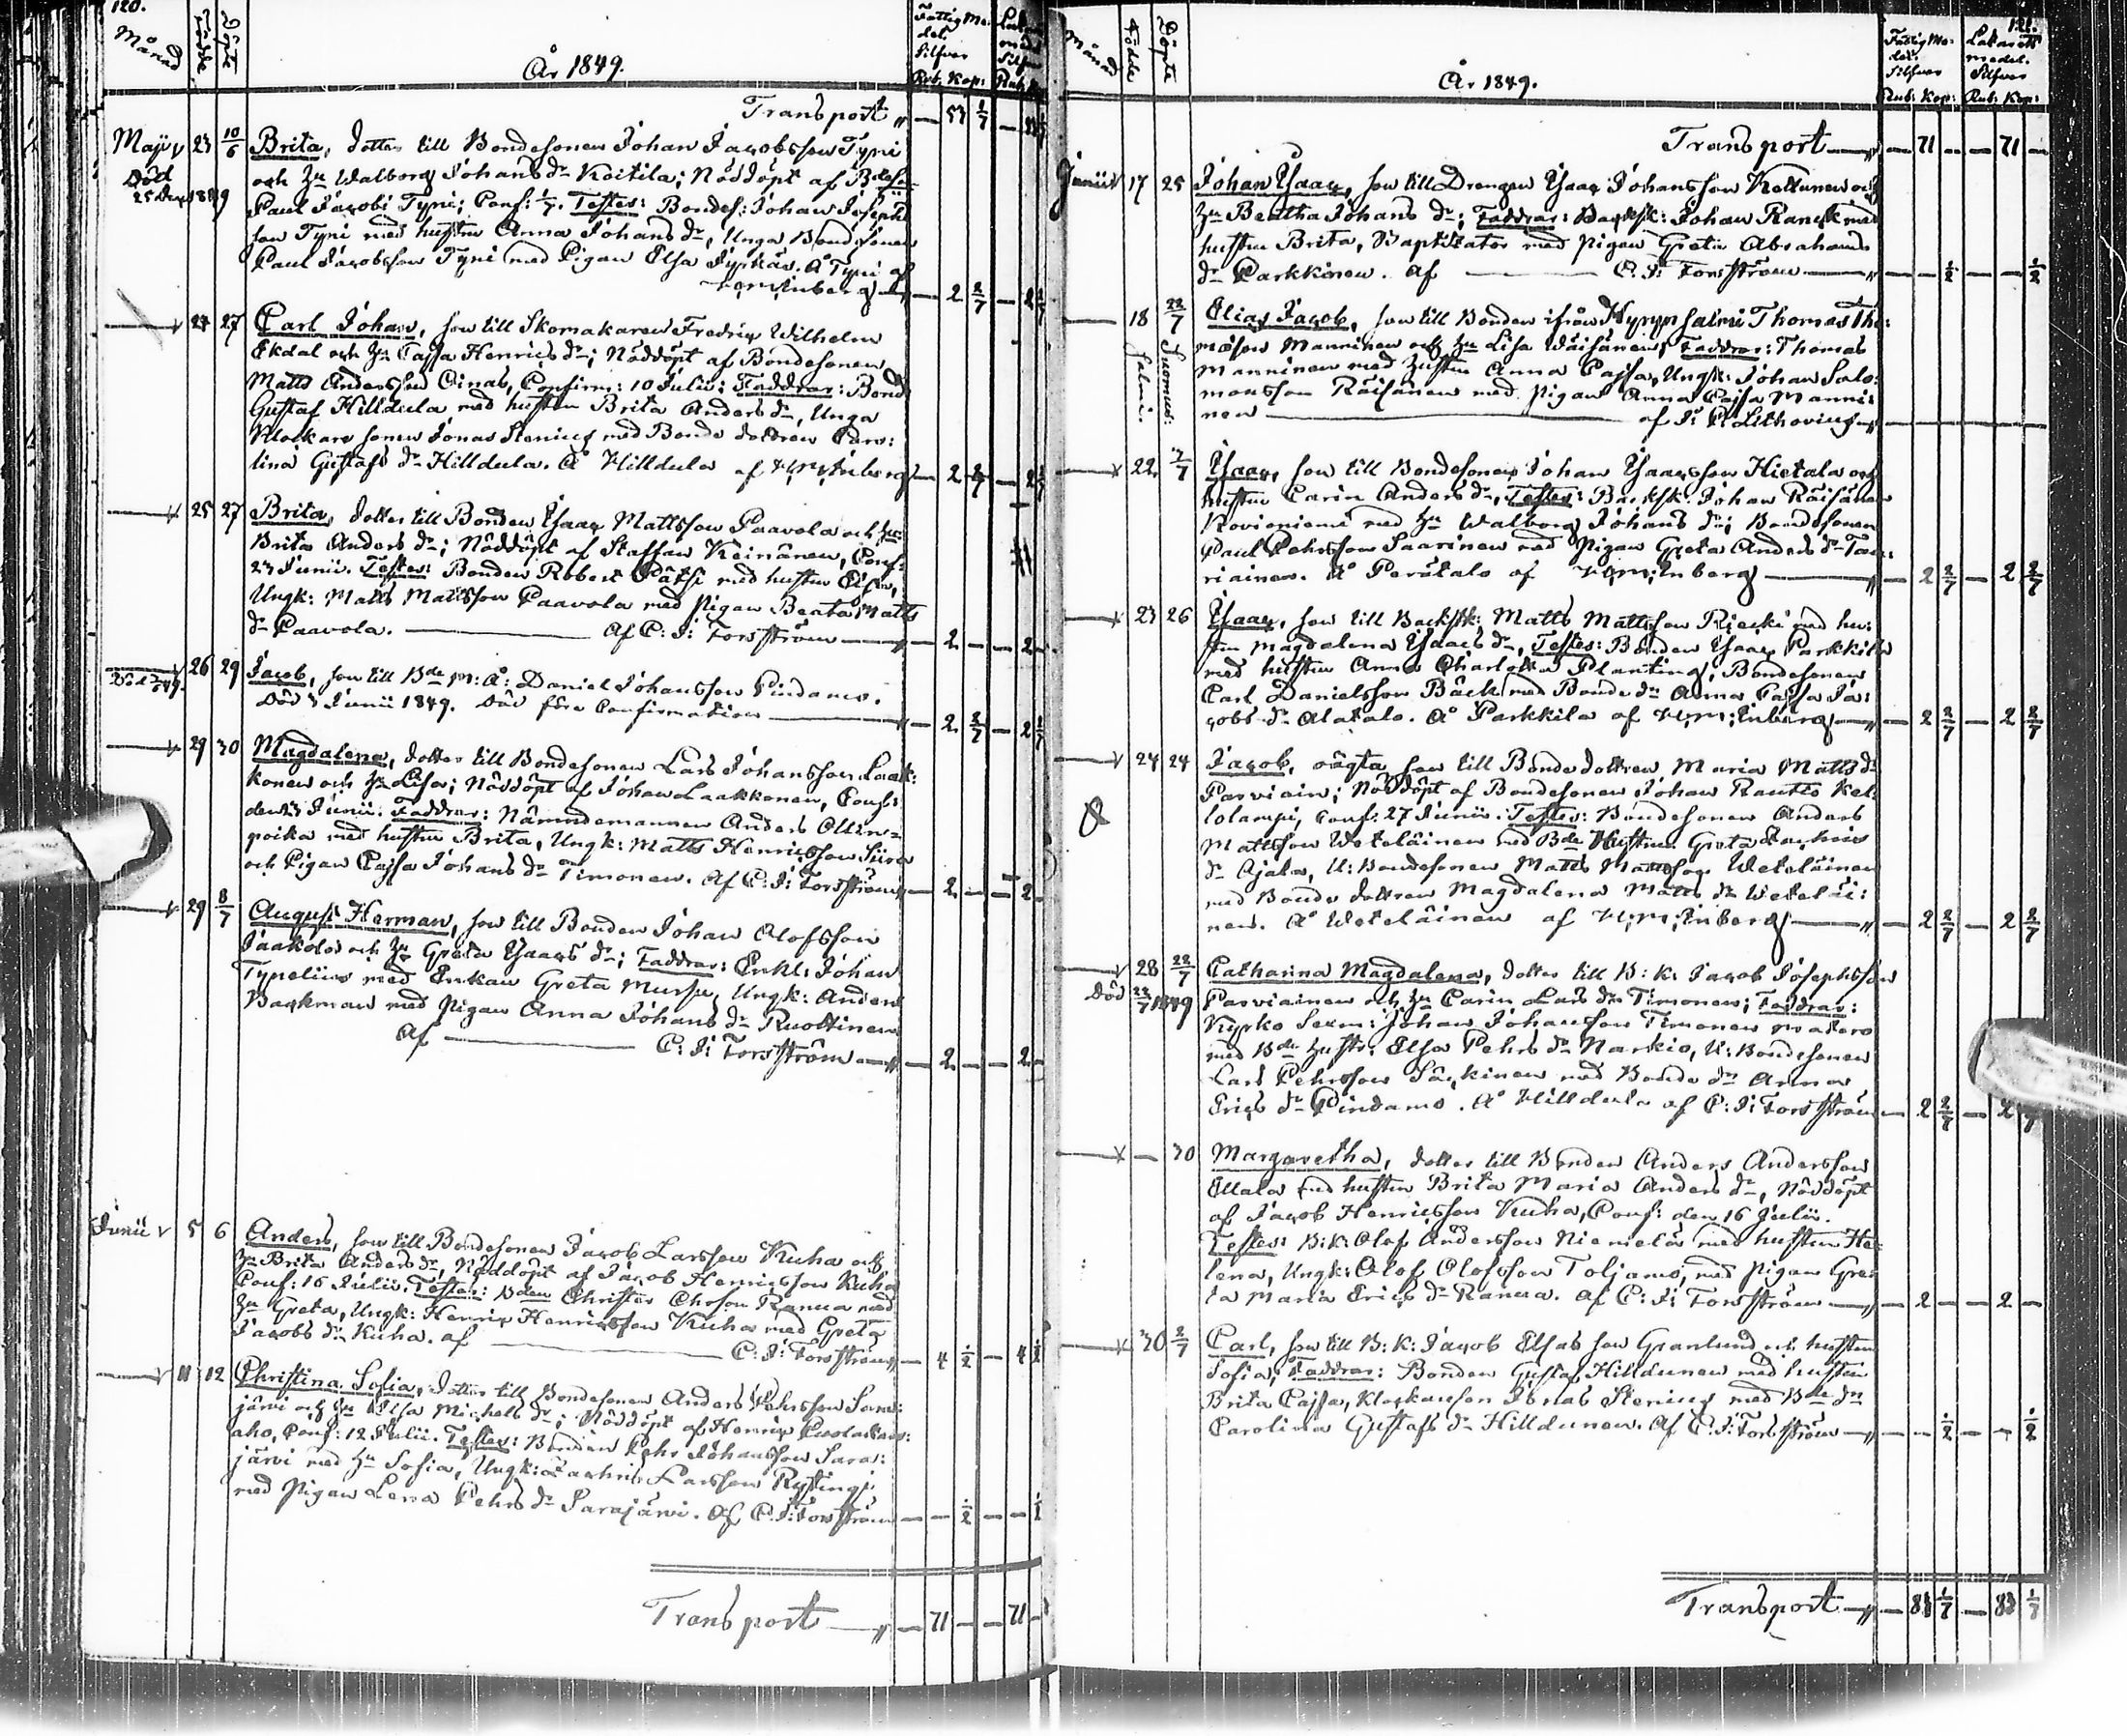 120.
Månad
Födde
Döpte
År 1849.
Fattig Me-
del.
Silfver
Rub. Kop:
Transport " — 53 1/7 —
Maji 23 10/6 Brita, dotter till Bondesonen Johan Jacobsson Tyni
Död och Hu Walborg Johans dr Koitila; Nöddöpt af Bdeson
Paul Jacobi Tyni; Conf: 1/7. Testes: Bondes: Johan Josephs
son Tyni med hustru Anna Johans dr, Unga Bondesonen
Paul Jacobsson Tyni med Pigan Elsa Jyrkäs. Å Tyni af
— 2 2/7 — 2
27 27 Carl Johan, son till Skomakaren Fredric Wilhelm
Ekdal och Hu Cajsa Henrics dr; Nöddöpt af Bondesonen
Matts Andersson Oinas, Confirm: 10 Julii; Faddrar: Bond
Gustaf Hilldula med hustru Brita Anders dr, Unga
Klockare sonen Jonas Stenius med Bonde dottren Caro:
lina Gustafs dr Hilldula. Å Hilldula af — 2 2/7 — 2
25 27 Brita, dotter till Bonden Isaac Mattsson Paavola och Hu
Brita Anders dr; Nöddöpt af Staffan Keinänen, Conf:
23 Junii. Testes: Bonden Robert Pätsi med hustru Elsa,
Ungk: Matts Mattsson Paavola med Pigan Beata Matts
dr Paavola. — Af C: J: Forsström — 2 — — 2
26 29 Jacob, son till Bde M: Å: Daniel Johansson Pindamo.
Död 3 Junii 1849. Död före Confirmation — 2 2/7 — 2
29 30 Magdalena, dotter till Bondesonen Lars Johansson Laak:
konen och Hu Lisa; Nöddöpt af Johan Laakkonen, Conf:
den 23 Junii. Faddrar: Nämndemannen Anders Ollin:
poika med hustru Brita, Ungk: Matts Henricsson Siira
och Pigan Cajsa Johans dr Timonen. Af C: J: Forsström — 2 — — 2
29 8/7 August Herman, son till Bonden Johan Olofsson
Jaakola och Hu Greta Isaacs dr; Faddrar: Enkl: Johan
Typelius med Enkan Greta Mursu, Ungk: Anders
Backman med Pigan Anna Johans dr Ruottinen
Af — C: J: Forsström — 2 — — 2
Junii 5 6 Anders, son till Bondesonen Jacob Larsson Kuha och
Hu Brita Anders dr, Nöddöpt af Jacob Henricsson Kuha
Conf: 16 Julii. Testes: Bden Christer Chrson Ranua med
Hu Greta, Ungk: Henric Henricsson Kuha med Greta
Jacobs dr Kuha. af — C: J: Forsström — 4 1/2 — 4 1/2
11 12 Christina Sofia, dotter till Bondesonen Anders Pehrsson Sara:
järvi och Hu Elsa Michels dr; Nöddöpt af Henric
aho, Conf: 12 Julii. Testes: Bonden Pehr Johansson Sara:
järvi med Hu Sofia, Ungk: Zachris Larsson Rytingi
med Pigan Lena Pehrs dr Sarajärvi. Af C: J: Forsström — — 1/2 — — 1/2
Transport — " — 71 — — 71 —
121.
Månad
Födde
Döpte
År 1849.
Fattig Me-
del.
Silfver
Rub: Kop:
Lasaretts
medel.
Silfver
Rub: Kop:
Transport — " — 71 — — 71 —
Junii 17 25 Johan Isaac, son till Drengen Isaac Johansson Kettunen och
Hu Beatha Johans dr; Faddrar: Backsk: Johan Ranck med
hustru Brita, Baptisator med Pigan Greta Abrahams
dr Parkkinen. af — C: J: Forsström — " — — 1/2 — — 1/2
18 22/7 Suomus: Salmi. Elias Jacob, son till Bonden ifrån Hyrynsalmi Thomas Tho:
masson Manninen och Hu Lisa Wäisänen; Faddrar: Thomas
Manninen med Hustru Anna Cajsa, Ungk: Johan Salo:
monsson Räisänen med Pigan Anna Cajsa Manni:
nen — af J: P: Lithovius — "
22 2/7 Isaac, son till Bondesonen Johan Isaacsson Hietala och
hustru Carin Anders dr, Testes: Backsk: Johan Räisänen
Kovioniemi med Hu Walborg Johans dr; Bondesonen
Paul Pehrsson Saarinen med Pigan Greta Anders dr
riainen. Å Perätalo af — " — 2 2/7 — 2 2/7
23 26 Isaac, son till Backsk: Matts Mattsson Riecki med hu:
stru Magdalena Isaacs dr, Testes: Bonden Isaac Parkkila
med hustru Anna Charlotta Planting, Bondesonen
Carl Danielsson Bäck med Bonde dr Anna Cajsa Ja:
cobs dr Alatalo. Å Parkkila af — " — 2 2/7 — 2 2/7
24 24 Jacob, oägta son till Bonde dottren Maria Matts dr
Parviain; Nöddöpt af Bondesonen Johan Rautio Kel:
lolampi, Conf: 27 Junii. Testes: Bondesonen Anders
Mattsson Weteläinen med Bde Hustrun Greta Zachris
dr Ajala, U: Bondesonen Matts Mattsson Weteläinen
med Bonde dottren Magdalena Matts dr Weteläi:
nen. Å Weteläinen af — " — 2 2/7 — 2 2/7
28 22/7 Catharina Magdalena, dotter till B: k: Jacob Josephsson
Död 22/7 1849 Parviainen och Hu Carin Lars dr Timonen; Faddrar:
Kyrko Sexm: Johan Johansson Timonen
med Bde Hustr: Elsa Pehrs dr Narkio, U: Bondesonen
Lars Pehrsson Säckinen med Bonde dr Anna
Erics dr Pindamo. Å Hilldula af C: J: Forsström — 2 2/7 — 2 2/7
— 30 Margaretha, dotter till Bonden Anders Andersson
Illala med hustru Brita Maria Anders dr, Nöddöpt
af Jacob Henricsson Kuha, Conf: den 16 Julii.
Testes: B: k: Olof Andersson Niemelä med hustru He:
lena, Ungk: Olof Olofsson Toljamo, med Pigan Gre:
ta Maria Erics dr Ranua. Af C: J: Forsström — " — 2 — — 2 —
30 2/7 Carl, son till B: K: Jacob Elias son Granlund och hustru
Sofia, Faddrar: Bonden Gustaf Hilldunen med hustru
Brita Cajsa, Klockareson Jonas Stenius med Bde dr
Carolina Gustafs dr Hilldunen. Af C: J: Forsström — " — — 1/2 — — 1/2
Transport — " — 83 1/7 — 83 1/7